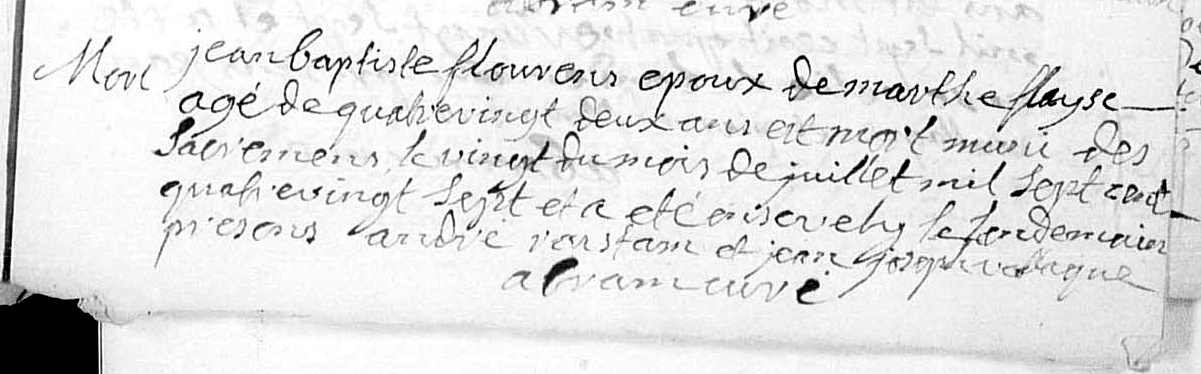 abram curé
Mort jean baptiste flourens epoux de marthe flayse
agé de quatrevingt deux ans est mort muni des
Sacremens le vingt du mois de juillet mil sept cent
quatrevingt sept et a eté ensevely le lendemain
presens andré et jean joseph
abram curé